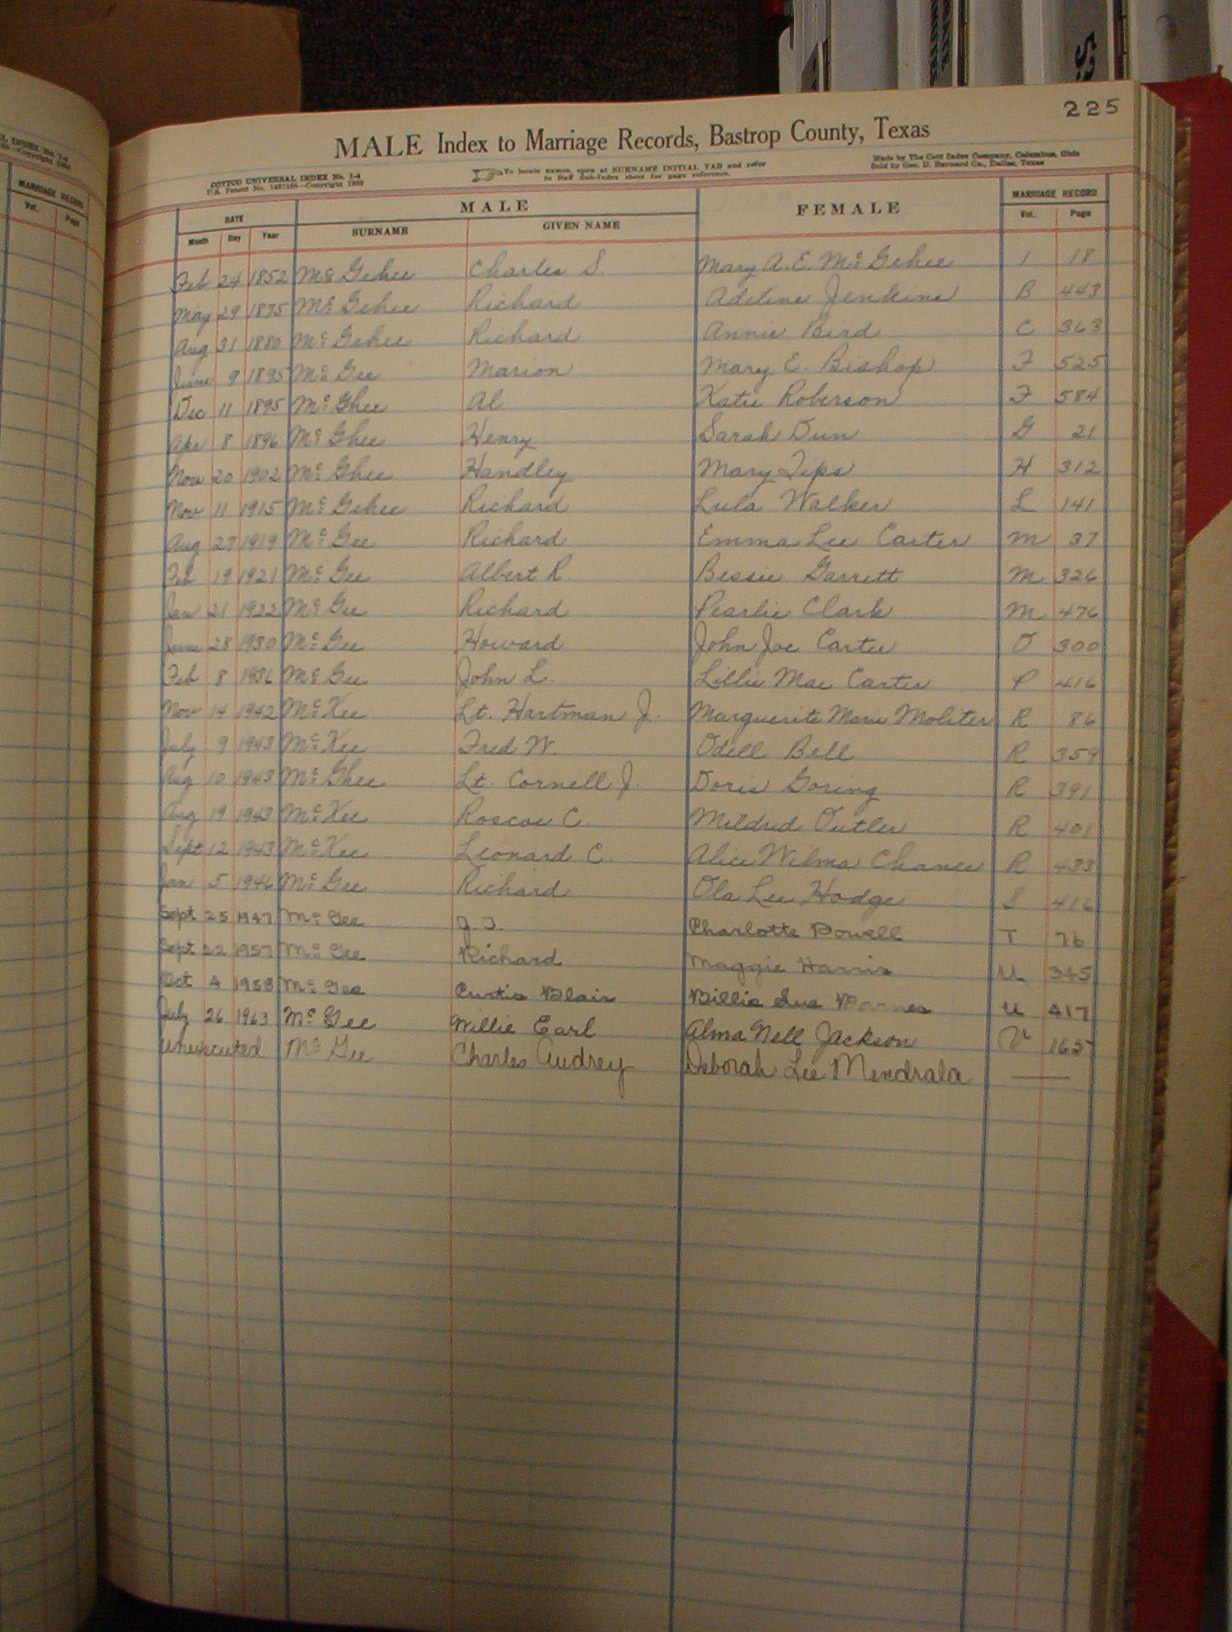 225
MALE Index to Marriage Records, Bastrop County, Texas
COTTCO UNIVERSAL INDEX No. 1-4
To locate names, open at SURNAME INITIAL TAB and refer
Made by The Cott Index Company, Columbus, Ohio
DATE MALE FEMALE MARRIAGE RECORD
Month Day Year SURNAME GIVEN NAME Vol. Page
Feb 24 1852 McGehee Charles S. Mary A. E. McGehee 1 18
May 29 1875 McGehee Richard Adeline Jenkins B 443
Aug 31 1880 McGehee Richard Annie Bird C 363
June 9 1895 McGee Marion Mary E. Bishop F 525
Dec 11 1895 McGhee Al Katie Roberson F 584
Apr 8 1896 McGhee Henry Sarah Dun G 21
Nov 20 1902 McGhee Handley Mary Tips H 312
Nov 11 1915 McGehee Richard Lula Walker L 141
Aug 27 1919 McGee Richard Emma Lee Carter M 37
Feb 19 1921 McGee Albert R. Bessie Garrett M 326
Jan 21 1922 McGee Richard Pearlie Clark M 476
June 28 1930 McGee Howard John Joe Carter O 300
Feb 8 1936 McGee John L. Lillie Mae Carter P 416
Nov 14 1942 McKee Lt. Hartman J. Marguerite Marie Moliter R 86
July 9 1943 McKee Fred W. Odell Bell R 359
Aug 10 1943 McGhee Lt. Cornell J. Doris Goring R 391
Aug 19 1943 McKee Roscoe C. Mildred Outler R 401
Sept 12 1943 McKee Leonard C. Alice Wilma Chance R 433
Jan 5 1946 McGee Richard Ola Lee Hodge S 416
Sept 25 1947 McGee J. Charlotte Powell T 76
Sept 22 1957 McGee Richard Maggie Harris U 345
Oct 4 1958 McGee Curtis Blair Billie Sue Barnes U 417
July 26 1963 McGee Willie Earl Alma Nell Jackson V 165
Unexecuted McGee Charles Audrey Deborah Lee Mendrala —
MARRIAGE RECORD
Vol. Page